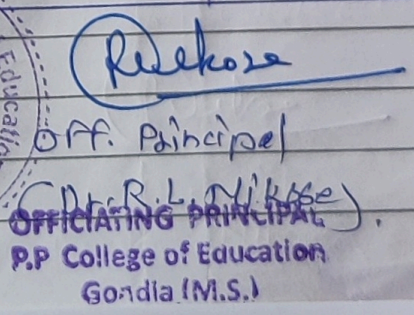 Education
Rnikose
Off. Principal
(Dr. R. L. Nikose).
OFFICIATING PRINCIPAL
P.P College of Education
Gondia (M.S.)